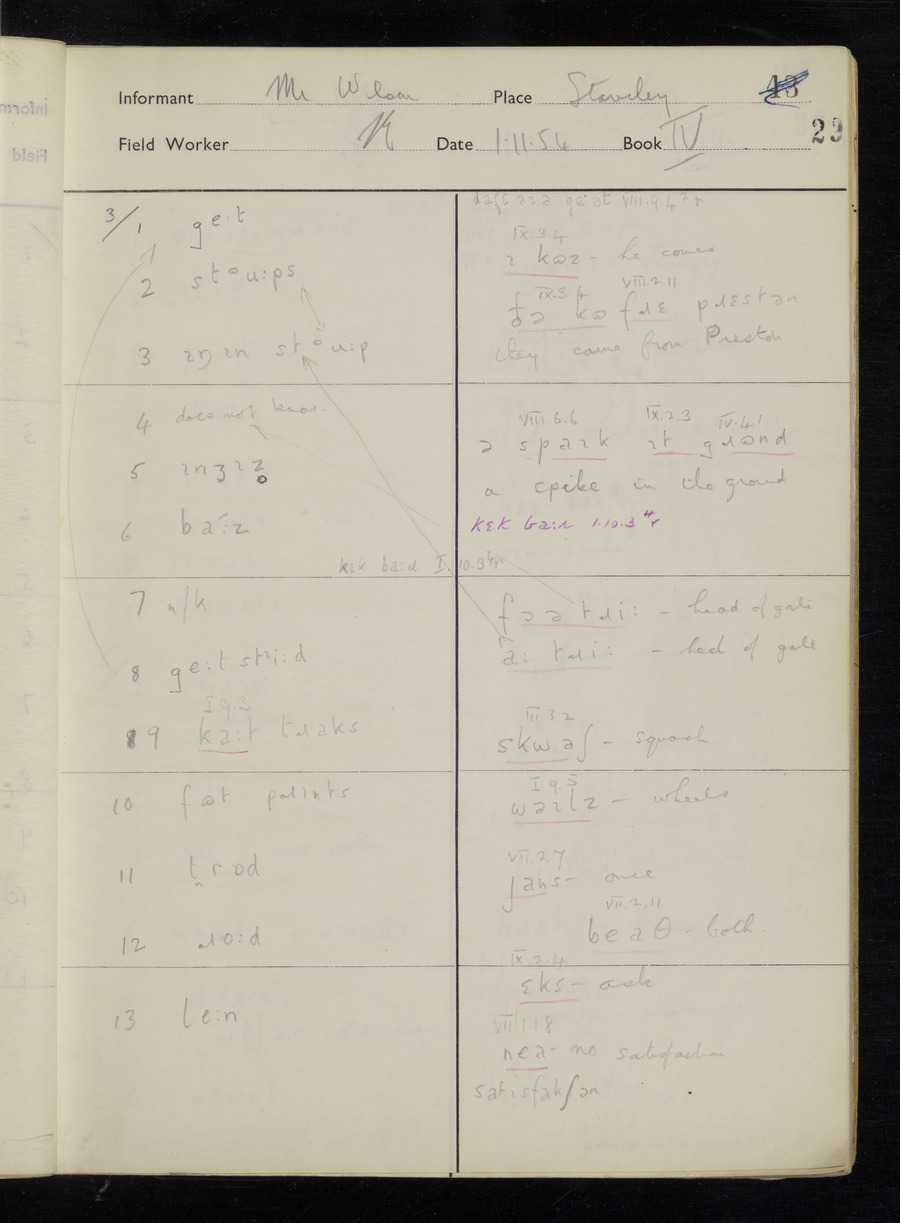 Informant Mr Wilson Place Staveley 43
Field Worker Date 1.11.54 Book IV 29
3/1 ge:t
2 stºu:ps
3 stºu:p
4 does not know.
5
6 ba:z
kɛk ba:ɹ I 10.3
7 n/k
8 ge:t stri:d
I.9.3
9 ka:t tɹaks
10 fət
11 t̪rod
12 ɹo:d
13 le:n
geət VIII.9.4
IX.3.4
ɪ kɷz - he comes
IX.3.4 VIII.2.11
ðə kɷ fɹɛ pɹɛstən
they come from Preston
VIII.6.6 IX.2.3 IV.4.1
ə spaɪk ɪt gɹɷnd
a spike in the ground
kɛk ba:ɹ 1.10.3
- head of gate
- head of gate
III.3.2
skwaʃ - squash
I.9.5
wəɪlz - wheels
VII.2.7
jans - once
VII.2.11
beəθ - both
IX.2.4
ɛks - ask
VII.1.18
neə - no satisfaction
satisfakʃən